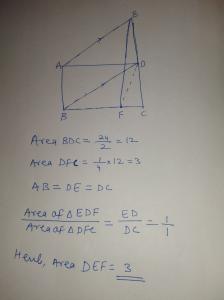 E
A
D
B
F
C
Area BDC = 24/2 = 12
Area DFC = 1/4 * 12 = 3
AB = DE = DC
Area of △EDF / Area of △DFC = ED / DC = 1/1
Hence, Area DEF = 3